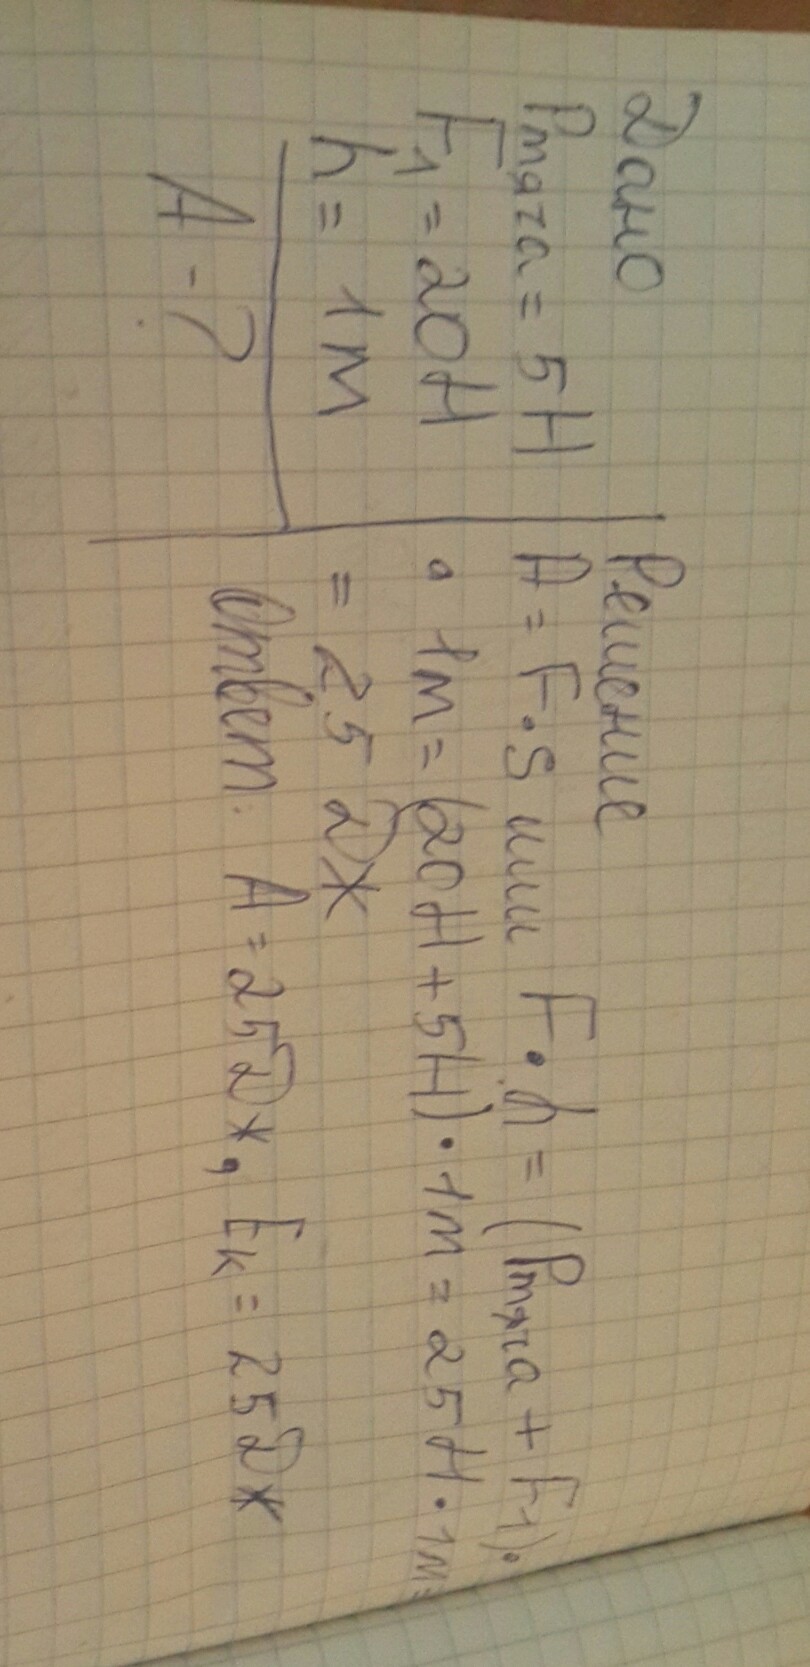 Дано
Pмяча = 5Н
F1 = 20Н
h = 1м
А - ?
Решение
A = F·S или F·h = (Pмяча + F1)·
· 1м = (20Н + 5Н)·1м = 25Н·1м=
= 25 Дж
Ответ: А = 25Дж, Eк = 25Дж